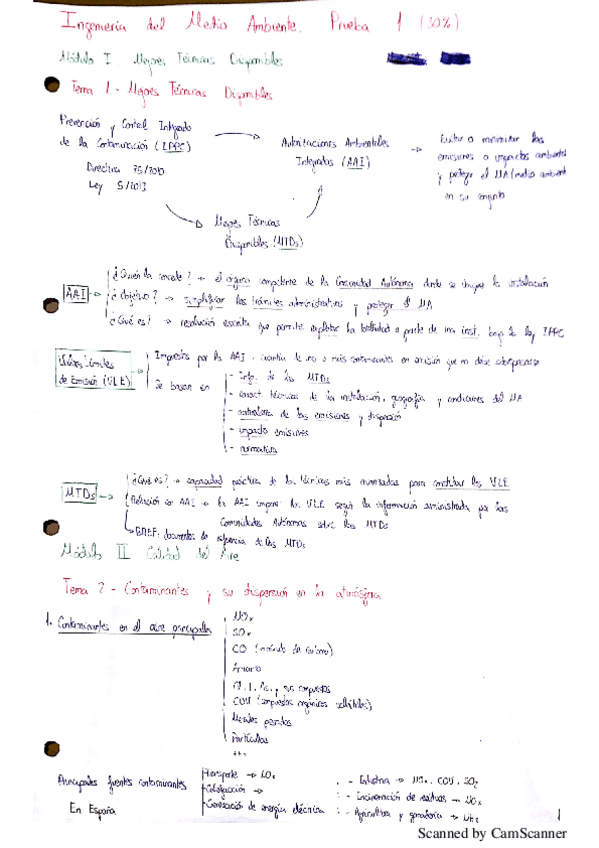 Ingeniería del Medio Ambiente. Prueba 1 (30%)
Módulo I. Mejores Técnicas Disponibles
Tema 1.- Mejores Técnicas Disponibles
Prevención y Control Integrado
de la Contaminación (IPPC)
Directiva 75/2010
Ley 5/2013
Autorizaciones Ambientales
Integradas (AAI)
Evitar o minimizar las
emisiones o impactos ambiental
y proteger el MA (medio ambient
en su conjunto
Mejores Técnicas
Disponibles (MTDs)
AAI
¿Quién la concede? → el órgano competente de la Comunidad Autónoma donde se ubique la instalación
¿Objetivo? → simplificar los trámites administrativos y proteger el MA
¿Qué es? → resolución escrita que permite explotar la totalidad o parte de una inst. bajo la ley IPPC
Valores Límites
de Emisión (VLE)
Impuestos por las AAI. cuantía de uno o más contaminantes en emisión que no debe sobrepasarse
Se basan en
- Info. de las MTDs
- caract. técnicas de la instalación, geografía y condiciones del MA
- naturaleza de las emisiones y dispersión
- impacto emisiones
- normativa
MTDs
¿Qué es? → capacidad práctica de las técnicas más avanzadas para constituir los VLE
Relación con AAI → la AAI impone los VLE según la información suministrada por las
Comunidades Autónomas sobre las MTDs
BREF: documentos de referencia de las MTDs
Módulo II Calidad del Aire
Tema 2 - Contaminantes y su dispersión en la atmósfera
1. Contaminantes en el aire principales
NOx
SOx
CO
Amianto
y sus compuestos
COV (compuestos orgánicos volátiles)
Metales pesados
Partículas
...
Principales fuentes contaminantes
En España
Transporte →
Calefacción →
Generación de energía eléctrica
- Industria → NOx, COV, SO2
- Incineración de residuos → NOx
- Agricultura y ganadería →
1
Scanned by CamScanner